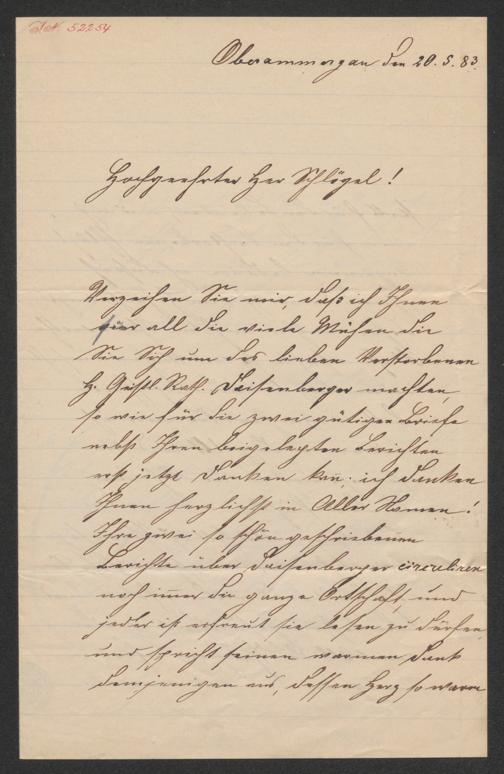 J.N. 52254
Oberammergau den 20. 5. 83.
Hochgeehrter Her Schlögel!
Verzeihen Sie mir, daß ich Ihnen
für all die viele Mühen die
Sie Sich um des lieben Verstorbenen
H. Geistl. Rath. Daisenberger machten,
so wie für die zwei gütigen Briefe
nebst Ihren beigelegten Berichten
erst jetzt Danken kan̄: ich danken
Ihnen herzlichst in Aller Namen!
Ihre zwei so schön geschriebenen
Berichte über Daisenberger circuliren
noch im̄er die ganze Ortschaft, und
jeder ist erfreut sie lesen zu dürfen,
und spricht seinen warmen Dank
demjenigen aus, dessen Herz so warm